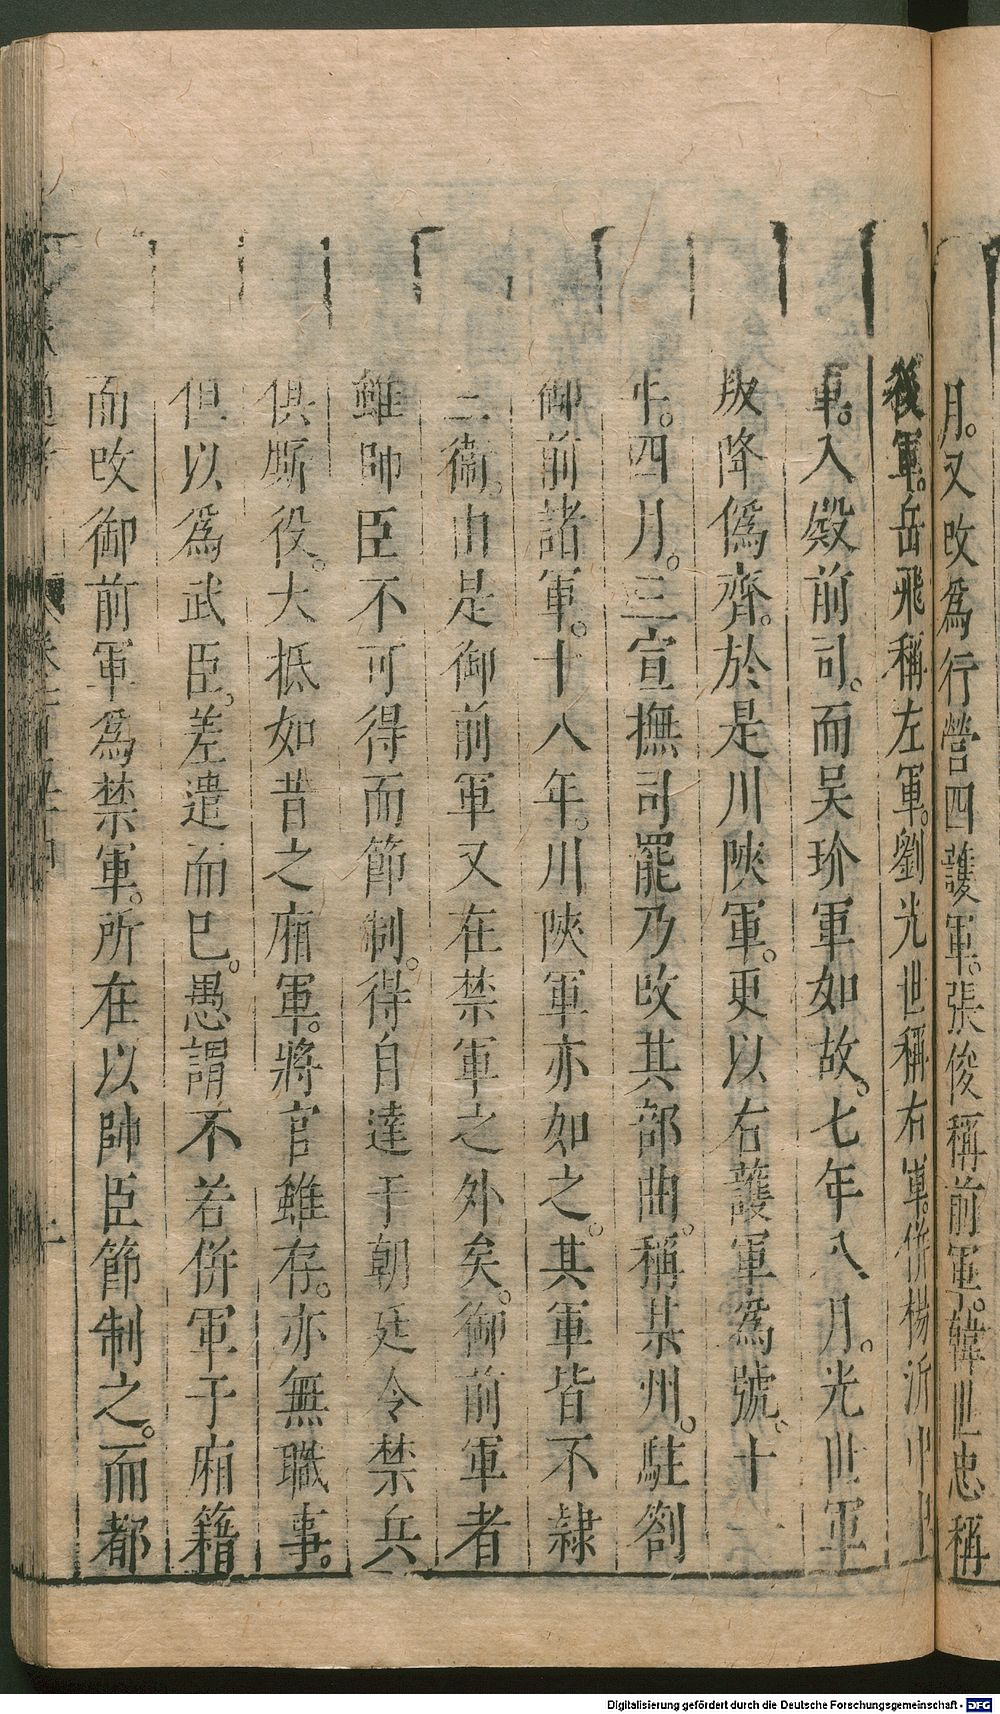 月。又改爲行營四護軍。張俊稱前軍。韓世忠稱
後軍。岳飛稱左軍。劉光世稱右軍。併楊沂中
軍。入殿前司。而吴玠軍如故。七年八月。光世軍
叛降僞齊。於是川陝軍。更以右護軍爲號。十一
年。四月。三宣撫司罷乃改其部曲。稱某州。駐劄
御前諸軍。十八年。川陝軍亦如之。其軍皆不隷
三衞。由是御前軍又在禁軍之外矣。御前軍者
雖帥臣不可得而節制。得自達于朝廷令禁兵
俱厮役。大抵如昔之廂軍。將官雖存。亦無職事。
但以爲武臣。差遣而已。愚謂不若併軍于廂籍
而改御前軍爲禁軍。所在以帥臣節制之。而都
Digitalisierung gefördert durch die Deutsche Forschungsgemeinschaft - DFG